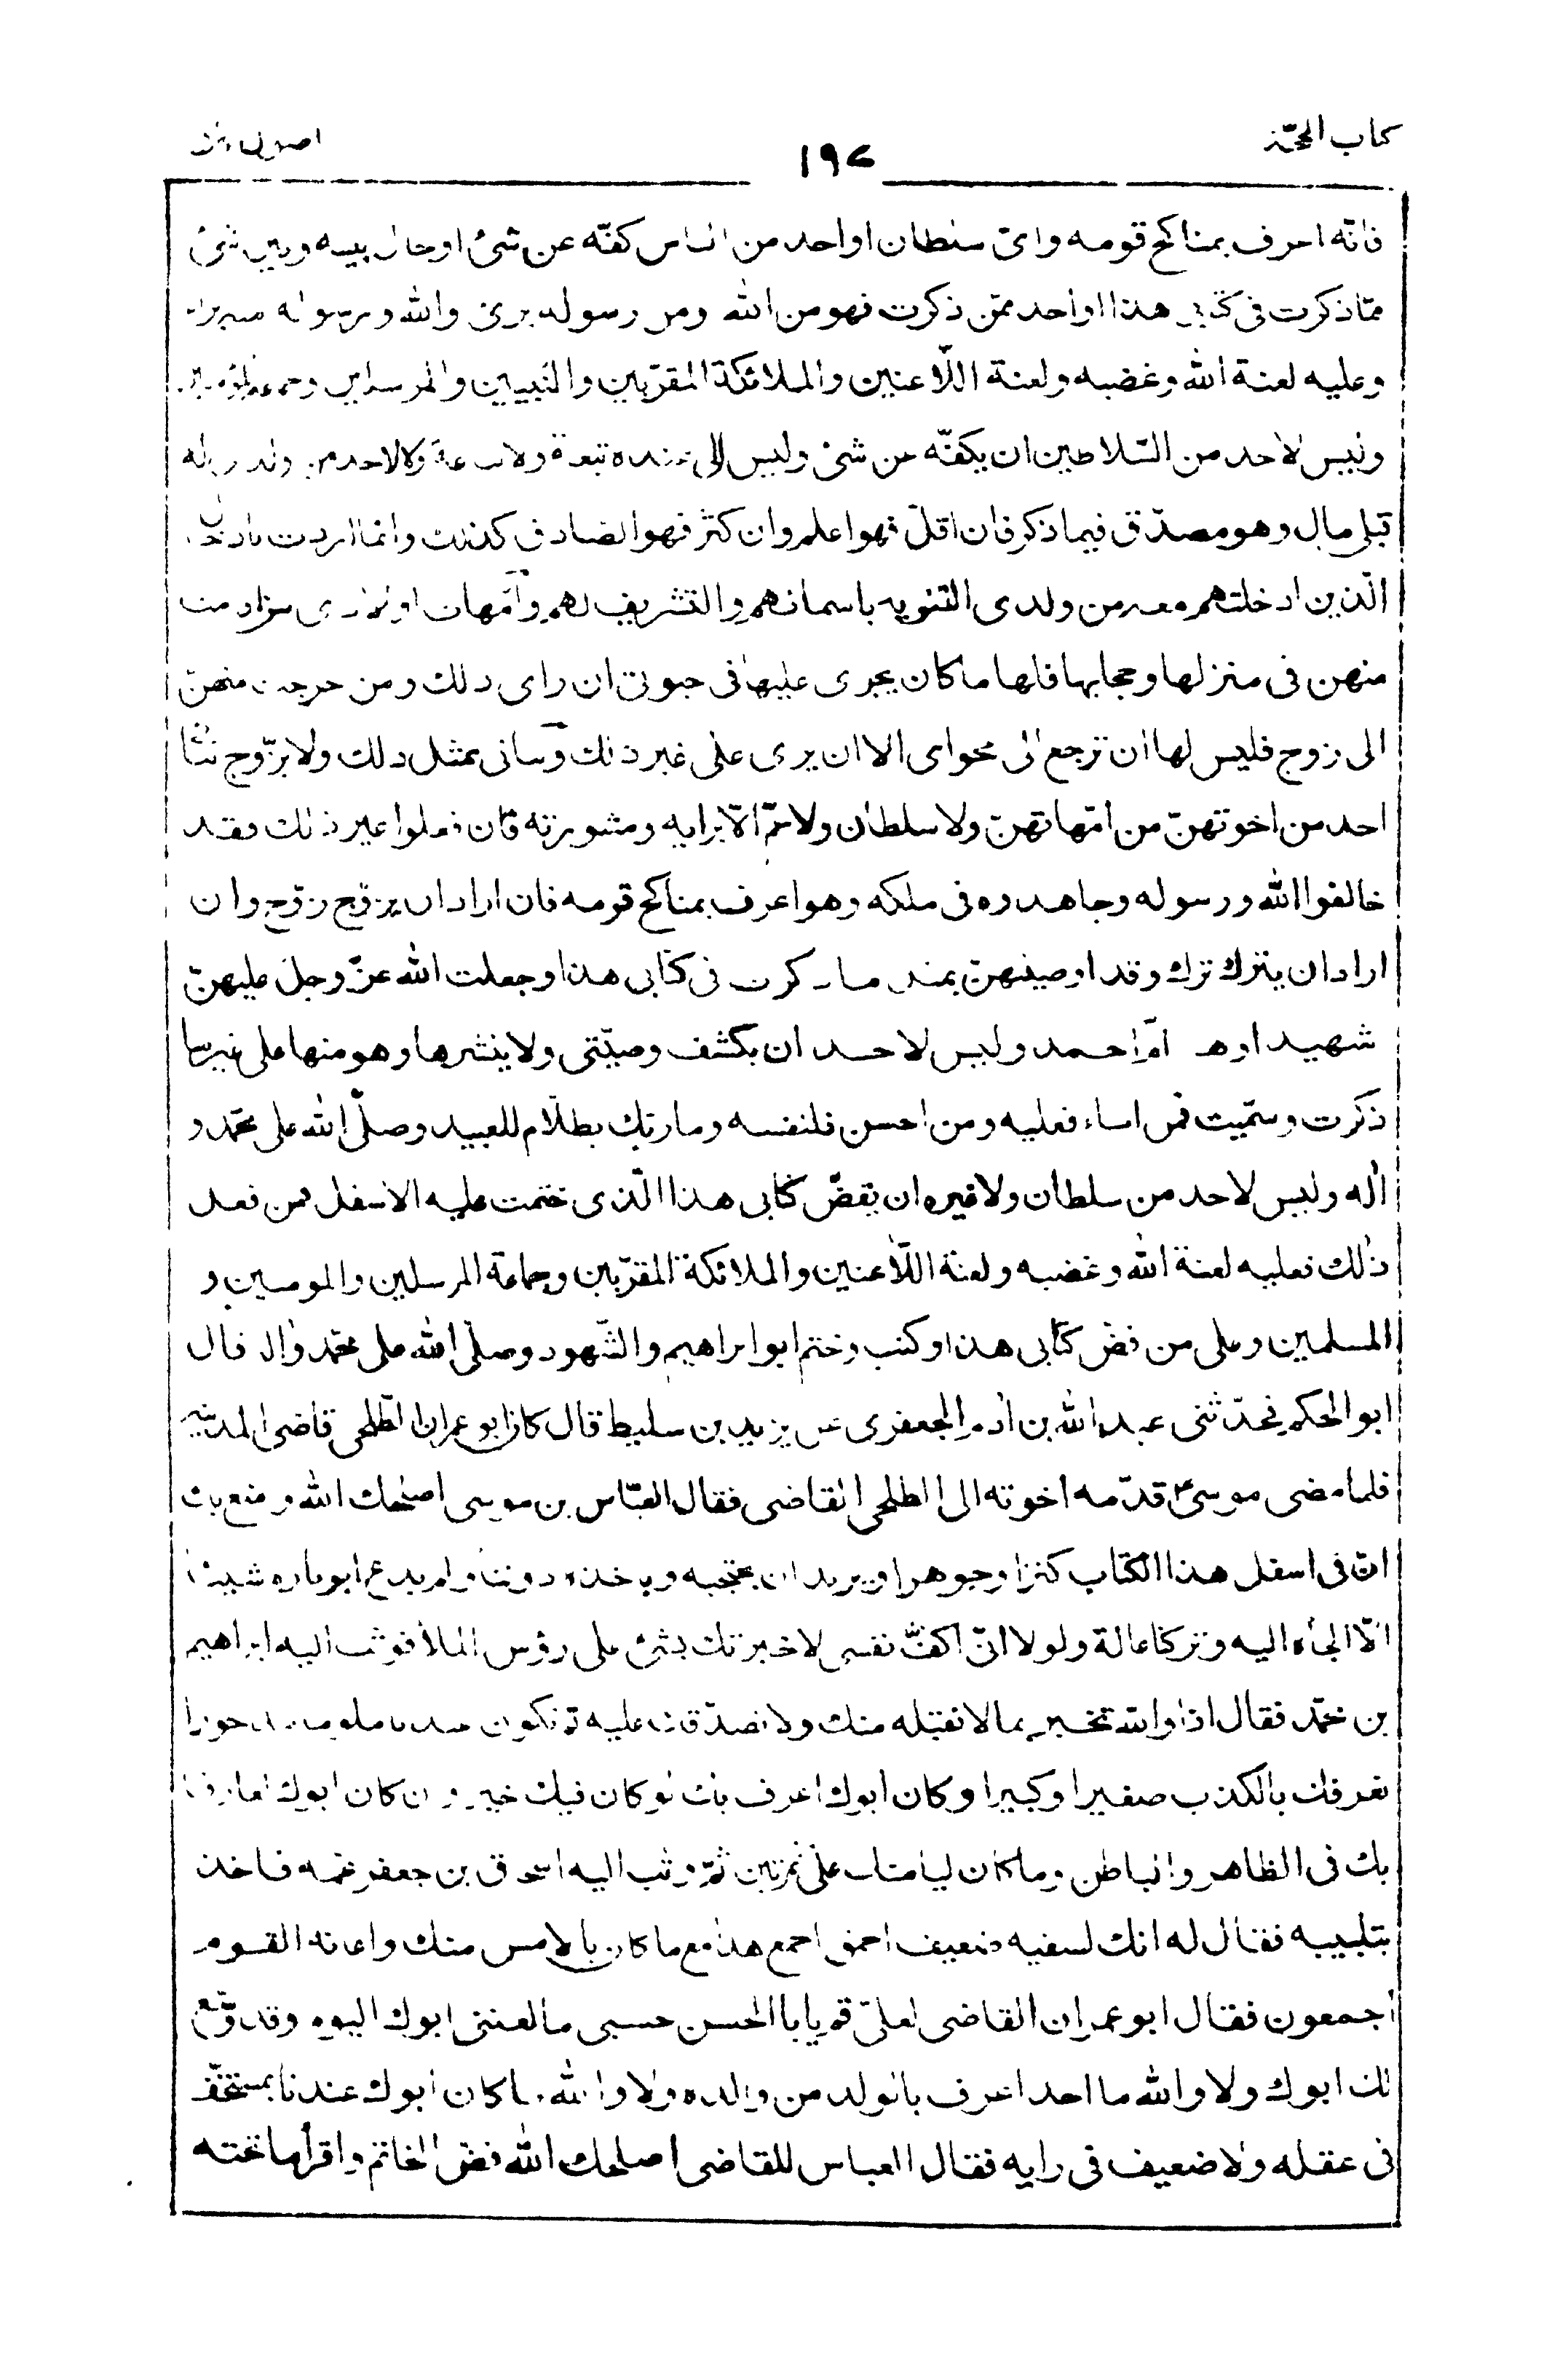 كتاب الحجّة
١٩٢
فانّه اعرف بمناكح قومه واىّ سلطان او احد من الناس كفّه عن شئ او حال بينه وبين شئ
ممّا ذكرت فى كتابى هذا او احد ممّن ذكرت فهو من الله ومن رسوله برئ والله ورسوله منه براء
وعليه لعنة الله وغضبه ولعنة اللّاعنين والملائكة المقرّبين والنّبيين والمرسلين وجماعة المؤمنين
وليس لاحد من السّلاطين ان يكفّه عن شئ وليس لى عنده تبعة ولا تباعة ولا لاحد من ولدى له
قبلى مال وهو مصدّق فيما ذكر فان اقلّ فهو اعلم وان كثر فهو الصّادق كذلك وانما اردت بادخال
الّذين ادخلتهم معه من ولدى التنويه باسمائهم والتشريف لهم وامّهات اولادى من اقامت
منهن فى منزلها وحجابها فلها ما كان يجرى عليها فى حيوتى ان راى ذلك ومن خرجت منهنّ
الى زوج فليس لها ان ترجع الى محواى الا ان يرى علىّ غير ذلك وبناتى بمثل ذلك ولا يزّوج بناتى
احد من اخوتهنّ من امّهاتهنّ ولا سلطان ولا عمّ الّا برايه ومشورته فان فعلوا غير ذلك فقد
خالفوا الله ورسوله وجاهدوه فى ملكه وهو اعرف بمناكح قومه فان اراد ان يزوّج زوّج وان
اراد ان يترك ترك وقد اوصيتهنّ بمثل ما ذكرت فى كتابى هذا وجعلت الله عزّ وجلّ عليهنّ
شهيدا وهو وامّ احمد وليس لاحد ان يكشف وصيّتى ولا ينشرها وهو منها على غير ما
ذكرت وسمّيت فمن اساء فعليه ومن احسن فلنفسه وما ربّك بظلّام للعبيد وصلّى الله على محمّد و
آله وليس لاحد من سلطان ولا غيره ان يفضّ كتابى هذا الّذى ختمت عليه الاسفل فمن فعل
ذلك فعليه لعنة الله وغضبه ولعنة اللّاعنين والملائكة المقرّبين وجماعة المرسلين والمومنين و
المسلمين وعلى من فضّ كتابى هذا وكتب وختم ابو ابراهيم والشّهود وصلّى الله على محمّد وآله قال
ابو الحكم فحدّثنى عبد الله بن آدم الجعفرى عن يزيد بن سليط قال كان ابو عمران الطّلحى قاضى المدينة
فلما مضى موسى ع قدّمه اخوته الى الطلحى القاضى فقال العبّاس بن موسى اصلحك الله وامتع بك
انّ فى اسفل هذا الكتاب كنزا وجوهرا ويريد ان يحتجبه وياخذه دوننا ولم يدع ابونا ره شيئا
الّا الجأه اليه وتركنا عالة ولولا انّى اكفّ نفسى لاخبرتك بشئ على رؤس الملأ فوثب اليه ابراهيم
بن محمّد فقال اذا والله تخبر بما لا نقبله منك ولا نصدّقك عليه ثم تكون عندنا ملوما مدحورا
نعرفك بالكذب صغيرا وكبيرا وكان ابوك اعرف بك لو كان فيك خير وان كان ابوك لعارفا
بك فى الظاهر والباطن وما كان ليامنك على تمرتين ثمّ وثب اليه اسحق بن جعفر عمّه فاخذ
بتلبيبه فقال له انك لسفيه ضعيف احمق اجمع هذا مع ما كان بالامس منك واعانه القوم
أجمعون فقال ابو عمران القاضى لعلىّ قم يا با الحسن حسبى ما لعننى ابوك اليوم وقد وسّع
لك ابوك ولا والله ما احد اعرف بالولد من والده ولا والله ما كان ابوك عندنا بمستخفّ
فى عقله ولا ضعيف فى رايه فقال العباس للقاضى اصلحك الله فضّ الخاتم واقرأ ما تحته